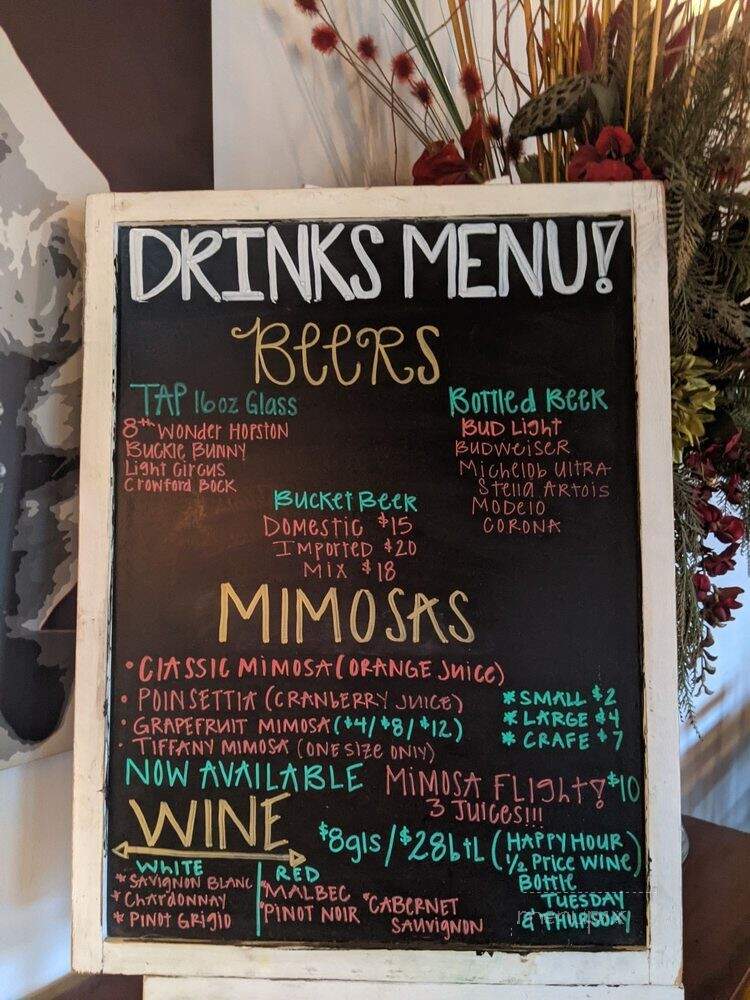 DRINKS MENU!
BEERS
TAP 16oz Glass
8th WONDER HOPSTON
BUCKLE BUNNY
Light Circus
CROWFORD BOCK
Bottled Beer
BUD Light
BUDWEISER
Michelob ULTRA
Stella Artois
MODELO
CORONA
Bucket Beer
Domestic $15
Imported $20
Mix $18
MIMOSAS
• CLASSIC MIMOSA (ORANGE JUICE)
• POINSETTIA (CRANBERRY JUICE)
• GRAPEFRUIT MIMOSA ($4/$8/$12)
• TIFFANY MIMOSA (ONE SIZE ONLY)
* SMALL $2
* LARGE $4
* CRAFE $7
NOW AVAILABLE MIMOSA FLIGHT! $10
3 JUICES!!!
WINE
$8gls/$28btl (HAPPY HOUR
½ PRICE WINE)
BOTTLE
TUESDAY
& THURSDAY
WHITE
* SAVIGNON BLANC
* CHARDONNAY
* PINOT GRIGIO
RED
*MALBEC
*PINOT NOIR
*CABERNET
SAUVIGNON